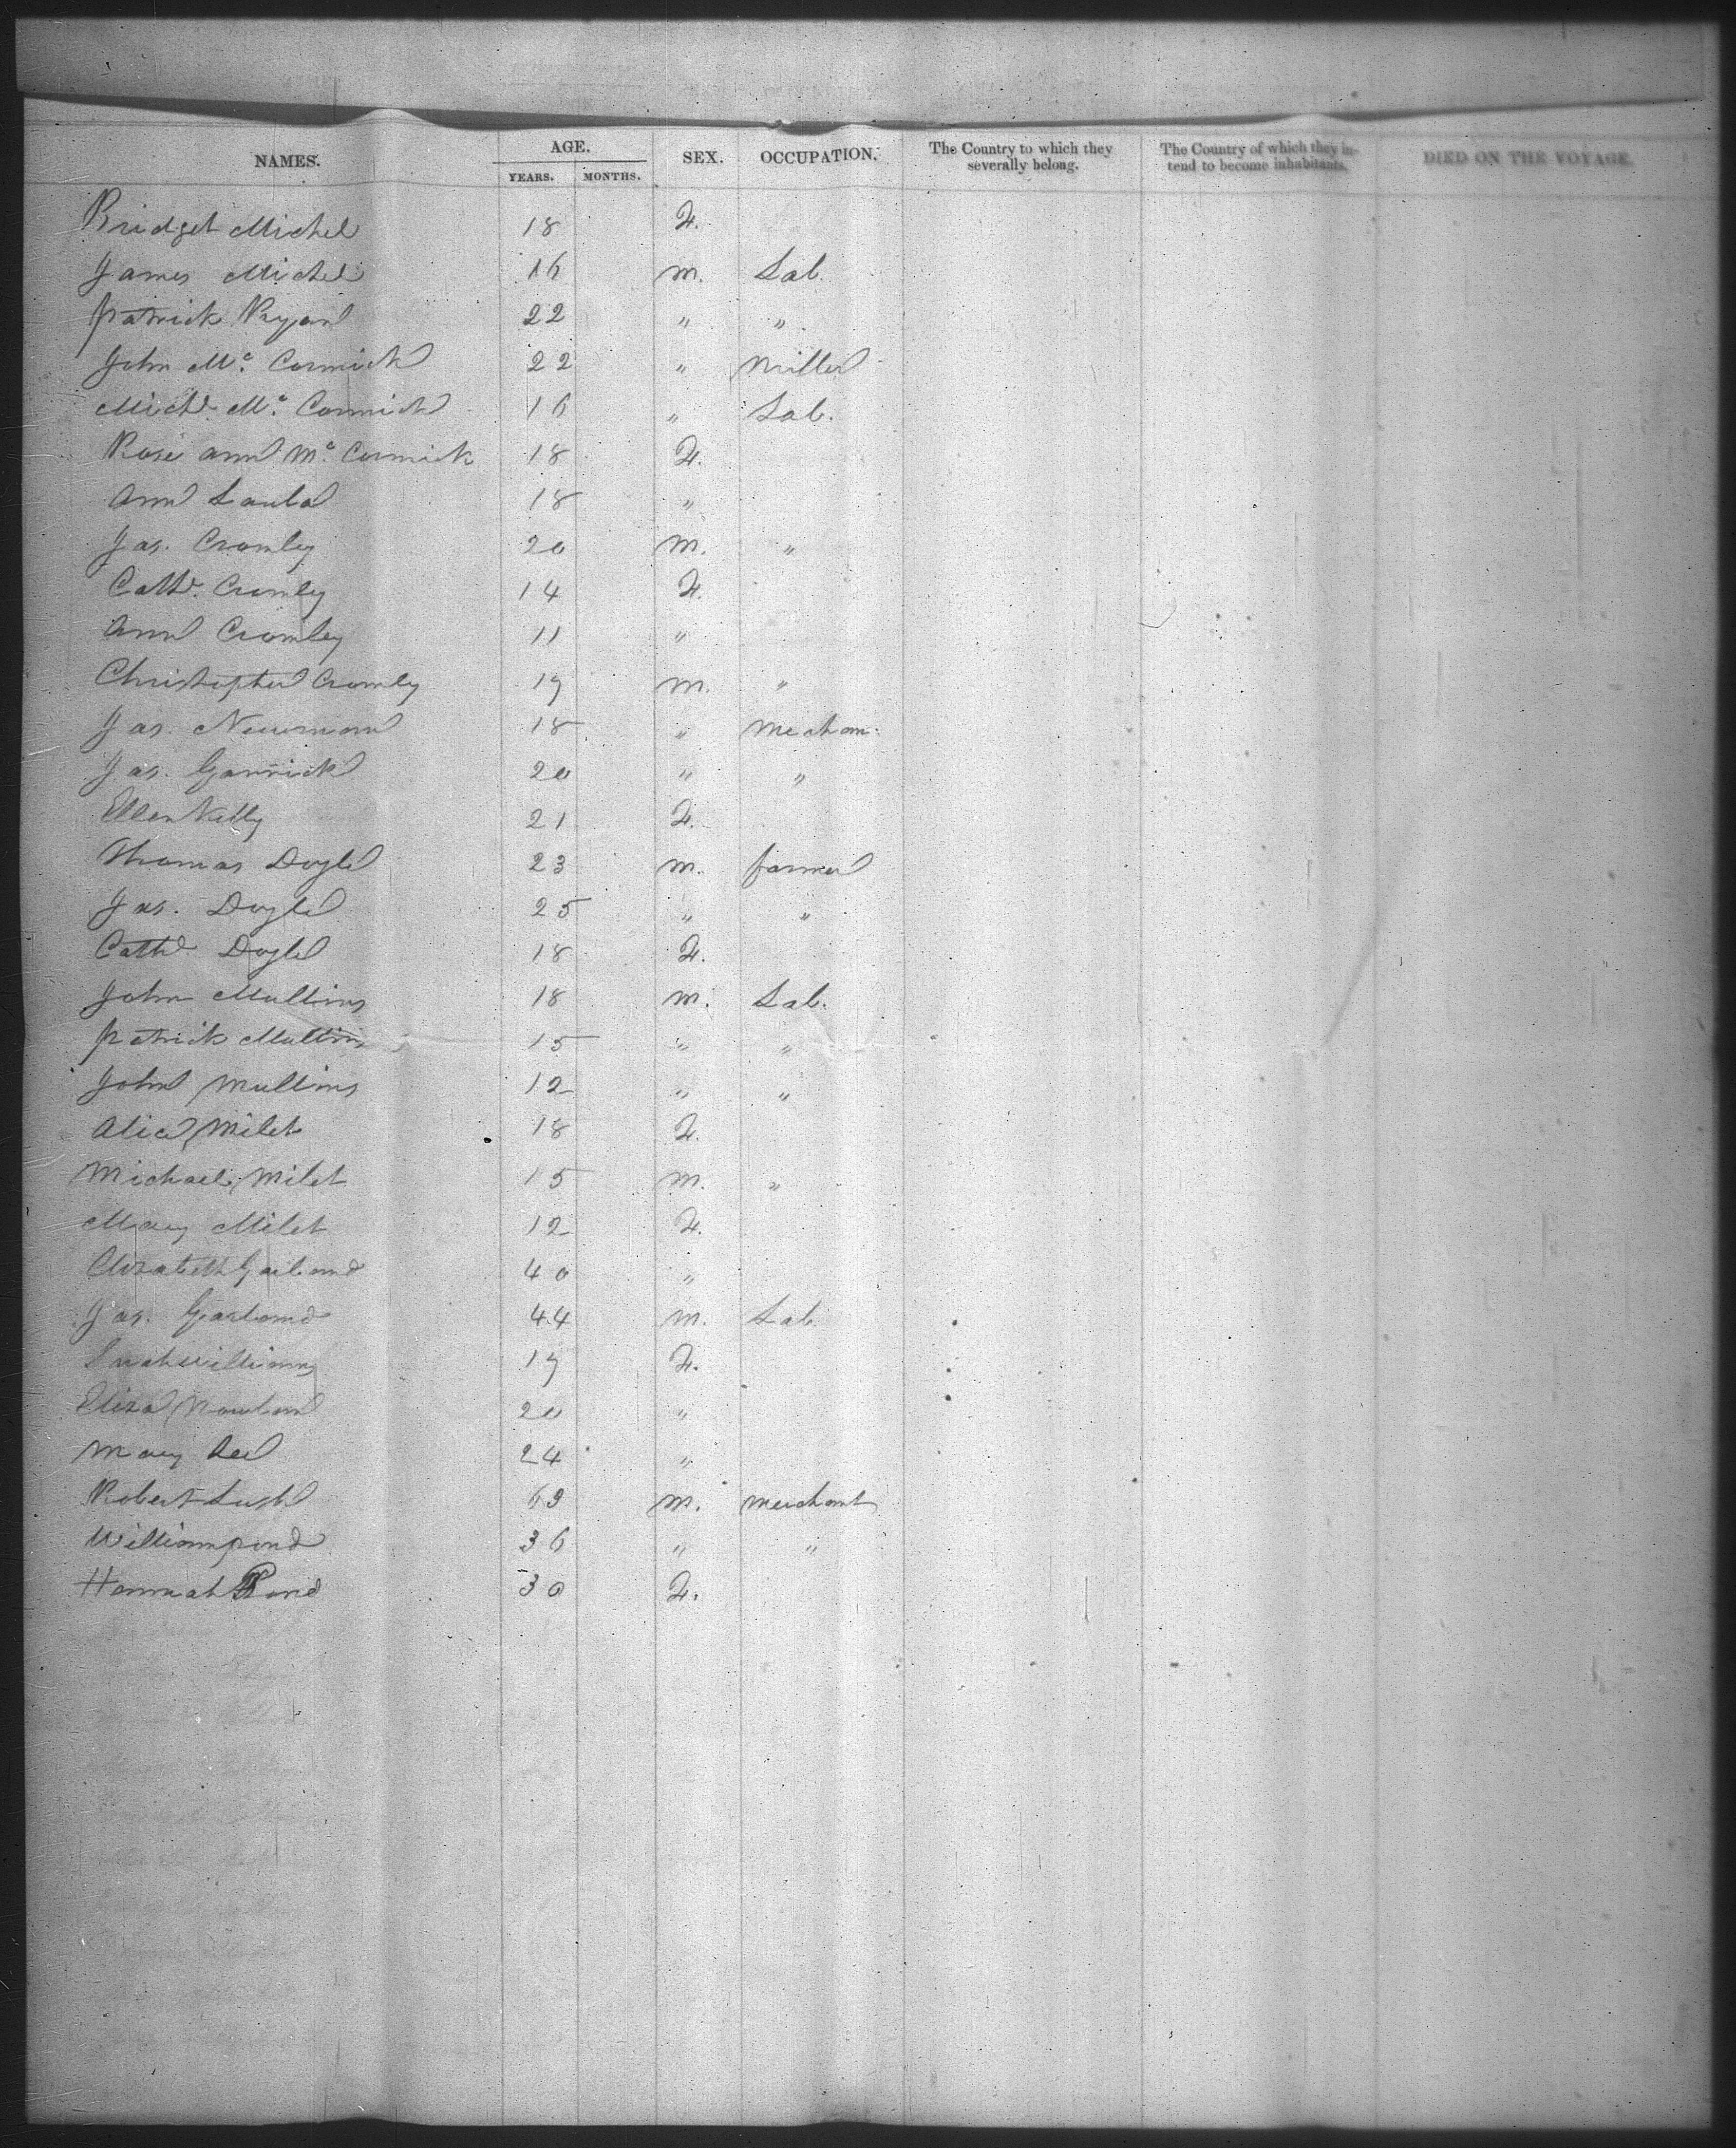 NAMES. AGE. SEX. OCCUPATION. The Country to which they severally belong. The Country of which they intend to become inhabitants. DIED ON THE VOYAGE.
YEARS. MONTHS.
Bridget Michel 18 F.
James Michel 16 m. Lab.
Patrick Ryan 22 " "
John Mc Cormick 22 " Miller
Michl. Mc Cormick 16 " Lab.
Rose ann Mc Cormick 18 F.
Ann 18 "
Jas. Cromley 20 m. "
Cath. Cromley 14 F.
Ann Cromley 11 "
Christopher Cromley 19 m. "
Jas. Newman 18 " Mechan.
Jas. Garrick 20 " "
Ellen Kelly 21 F.
Thomas Doyle 23 m. farmer
Jas. Doyle 25 " "
Cath. Doyle 18 F.
John Mullins 18 m. Lab.
Patrick Mullins 15 " "
John Mullins 12 " "
Alice Milet 18 F.
Michael Milet 15 m. "
Mary Milet 12 F.
Elizabeth Garland 40 "
Jas. Garland 44 m. Lab
Williams 19 F.
Eliza 20 "
Mary Lee 24 "
Robert Lush 69 m. merchant
William pond 36 " "
Hannah Pond 30 F.